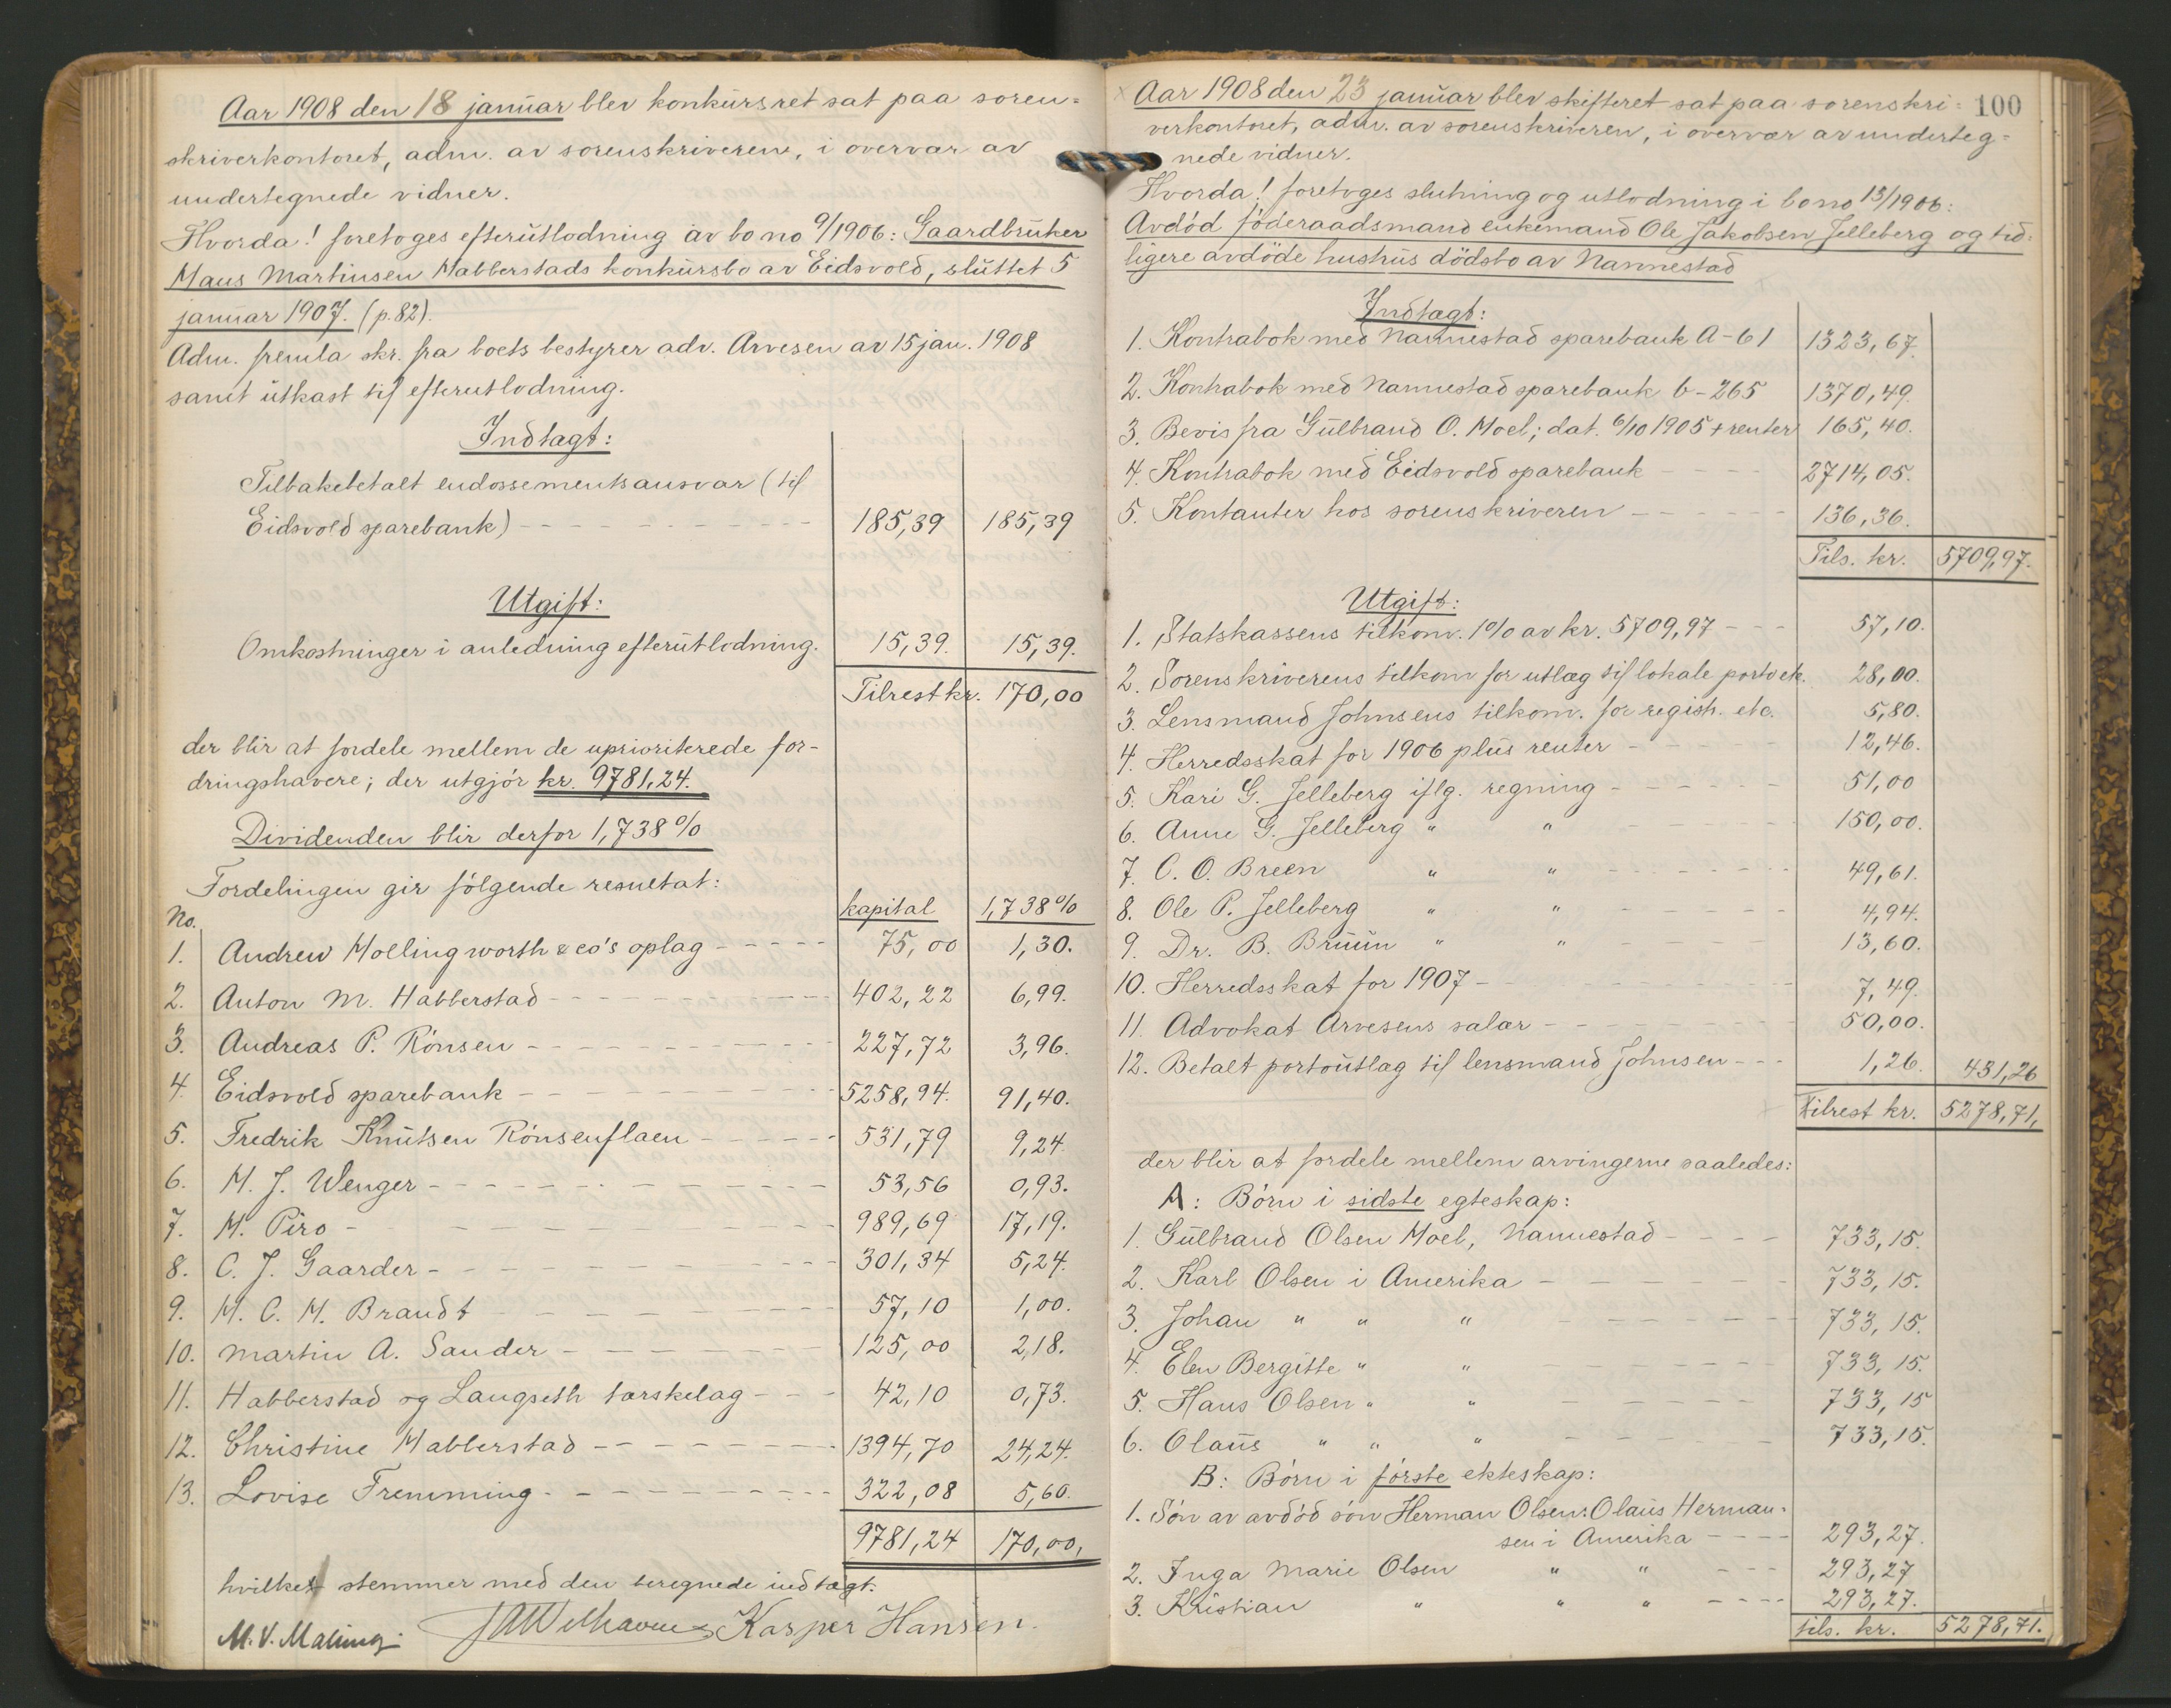 Aar 1908 den 18 januar blev konkursret sat paa soren-
skriverkontoret, adm. av sorenskriveren, i overvær av
undertegnede vidner.
Hvorda! foretoges efterutlodning av bo no 9/1906: Gaardbruker
Hans Martinsen Habberstads konkursbo av Eidsvold, sluttet 5
januar 1907. (p. 82).
Adm. fremla skr. fra boets bestyrer adv. Arvesen av 15 jan. 1908
samt utkast til efterutlodning.
Indtægt:
Tilbakebetalt endossementsansvar (til
Eidsvold sparebank) 185,39 185,39
Utgift:
Omkostninger i anledning efterutlodning. 15,39. 15,39.
Tilrest kr. 170,00
der blir at fordele mellem de uprioriterede for-
dringshavere; der utgjør kr. 9781,24.
Dividenden blir derfor 1,738 %
Fordelingen gir følgende resultat:
No. kapital 1,738 %
1. Andrew Hollingworth & co's oplag 75,00 1,30.
2. Anton M. Habberstad 402,22 6,99.
3. Andreas P. Rønsen 227,72 3,96.
4. Eidsvold sparebank 5258,94. 91,40.
5. Fredrik Knutsen Rønsenflaen 531,79 9,24.
6. H. J. Wenger 53,56 0,93.
7. H. Piro 989,69 17,19.
8. C. J. Gaarder 301,34 5,24.
9. H. C. H. Brandt 57,10 1,00.
10. Martin A. Sander 125,00 2,18.
11. Habberstad og Langseth tærskelag 42,10 0,73.
12. Christine Habberstad 1394,70 24,24.
13. Lovise Fremming 322,08 5,60.
9781,24 170,00,
hvilket stemmer med den beregnede indtægt.
M. V. Malling. Kasper Hansen.
100
Aar 1908 den 23 januar blev skifteret sat paa sorenskri-
verkontoret, adm. av sorenskriveren, i overvær av underteg-
nede vidner.
Hvorda! foretoges slutning og utlodning i bo no 13/1906:
Avdød føderaadsmand enkemand Ole Jakobsen Jelleberg og tid-
ligere avdøde hustrus dødsbo av Nannestad
Indtægt:
1. Kontrabok med Nannestad sparebank A-61 1323,67.
2. Kontrabok med Nannestad sparebank b-265 1370,49.
3. Bevis fra Gulbrand O. Moel; dat. 6/10 1905 + renter 165,40.
4. Kontrabok med Eidsvold sparebank 2714,05.
5. Kontanter hos sorenskriveren 136,36.
Tils. kr. 5709,97.
Utgift:
1. Statskassens tilkom. 1% av kr. 5709,97 57,10.
2. Sorenskriverens tilkom for utlæg til lokale porto etc. 28,00.
3. Lensmand Johnsens tilkom. for registr. etc. 5,80.
4. Herredsskat for 1906 plus renter 12,46.
5. Kari G. Jelleberg iflg. regning 51,00
6. Anne G. Jelleberg " " 150,00.
7. C. O. Breen " " 49,61.
8. Ole P. Jelleberg " " 4,94.
9. Dr. B. Bruun " " 13,60.
10. Herredsskat for 1907 7,49.
11. Advokat Arvesens salær 50,00.
12. Betalt portoutlæg til lensmand Johnsen 1,26. 431,26
Tilrest kr. 5278,71,
der blir at fordele mellem arvingerne saaledes:
A: Børn i sidste egteskap:
1. Gulbrand Olsen Moel, Nannestad 733,15.
2. Karl Olsen i Amerika 733,15.
3. Johan " " " 733,15.
4. Elen Bergitte " " 733,15.
5. Hans Olsen " " 733,15
6. Olaus " " " 733,15.
B: Børn i første ekteskap:
1. Søn av avdød søn Herman Olsen: Olaus Herman-
sen i Amerika 293,27.
2. Inga Marie Olsen " " 293,27
3. Kristian " " " 293,27.
tils. kr. 5278,71.